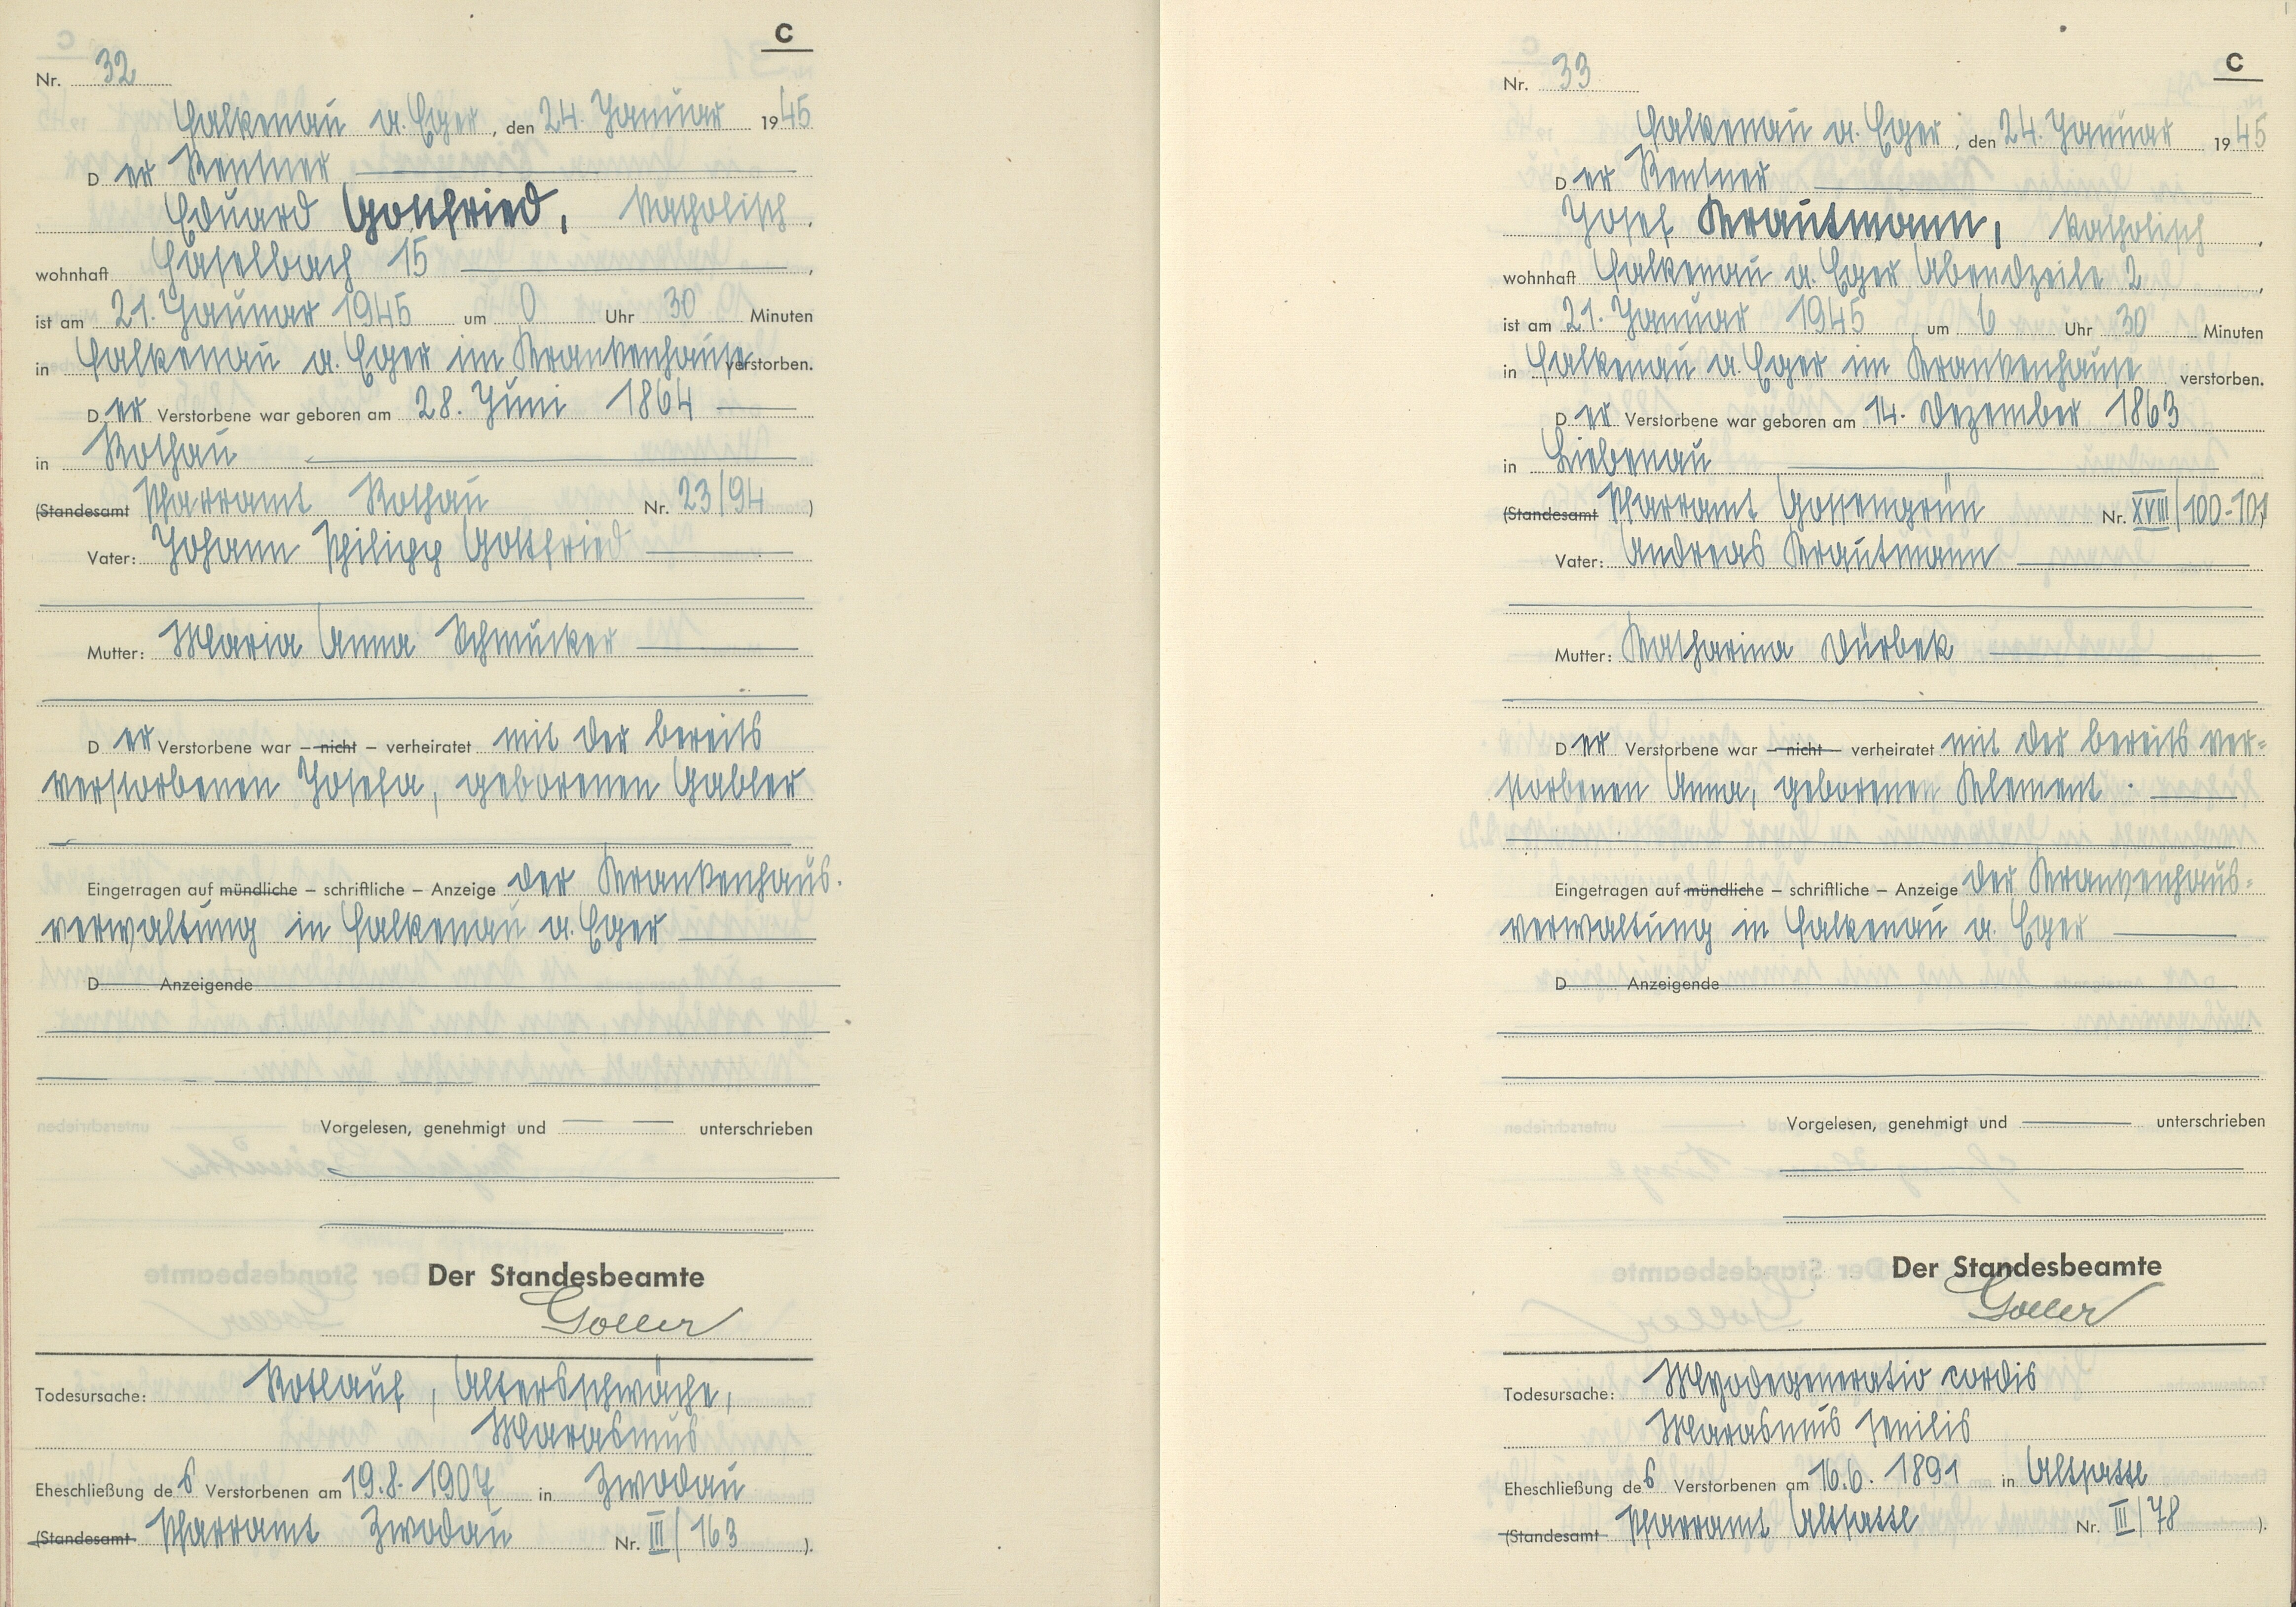 C
Nr. 32
Falkenau a. Eger, den 24. Januar 1945
Der Rentner
Eduard Gottfried, katholisch,
wohnhaft Haselbach 15,
ist am 21. Januar 1945 um 0 Uhr 30 Minuten
in Falkenau a. Eger im Krankenhause verstorben.
Der Verstorbene war geboren am 28. Juni 1864
in Rothau
(Standesamt Pfarramt Rothau Nr. 23/94)
Vater: Johann Philipp Gottfried
Mutter: Maria Anna Schmucker
Der Verstorbene war – nicht – verheiratet mit der bereits
verstorbenen Josefa, geborenen Gabler
Eingetragen auf mündliche – schriftliche – Anzeige der Krankenhaus-
verwaltung in Falkenau a. Eger
D Anzeigende
Vorgelesen, genehmigt und unterschrieben
Der Standesbeamte
Goller
Todesursache: Rotlauf, Altersschwäche,
Marasmus
Eheschließung des Verstorbenen am 19.8.1907 in Zwodau
(Standesamt Pfarramt Zwodau Nr. III/163).
C
Nr. 33
Falkenau a. Eger, den 24. Januar 1945
Der Rentner
Josef Krautmann, katholisch,
wohnhaft Falkenau a. Eger Abendzeile 2,
ist am 21. Januar 1945 um 6 Uhr 30 Minuten
in Falkenau a. Eger im Krankenhause verstorben.
Der Verstorbene war geboren am 14. Dezember 1863
in Liebenau
(Standesamt Pfarramt Gossengrün Nr. XVIII/100-101)
Vater: Andreas Krautmann
Mutter: Katharina Dürbek
Der Verstorbene war – nicht – verheiratet mit der bereits ver-
storbenen Anna, geborenen Klement.
Eingetragen auf mündliche – schriftliche – Anzeige der Krankenhaus-
verwaltung in Falkenau a. Eger
D Anzeigende
Vorgelesen, genehmigt und unterschrieben
Der Standesbeamte
Goller
Todesursache: Myodegeneratio cordis
Marasmus senilis
Eheschließung des Verstorbenen am 16.6.1891 in Altsattl
(Standesamt Pfarramt Altsattl Nr. III/78).